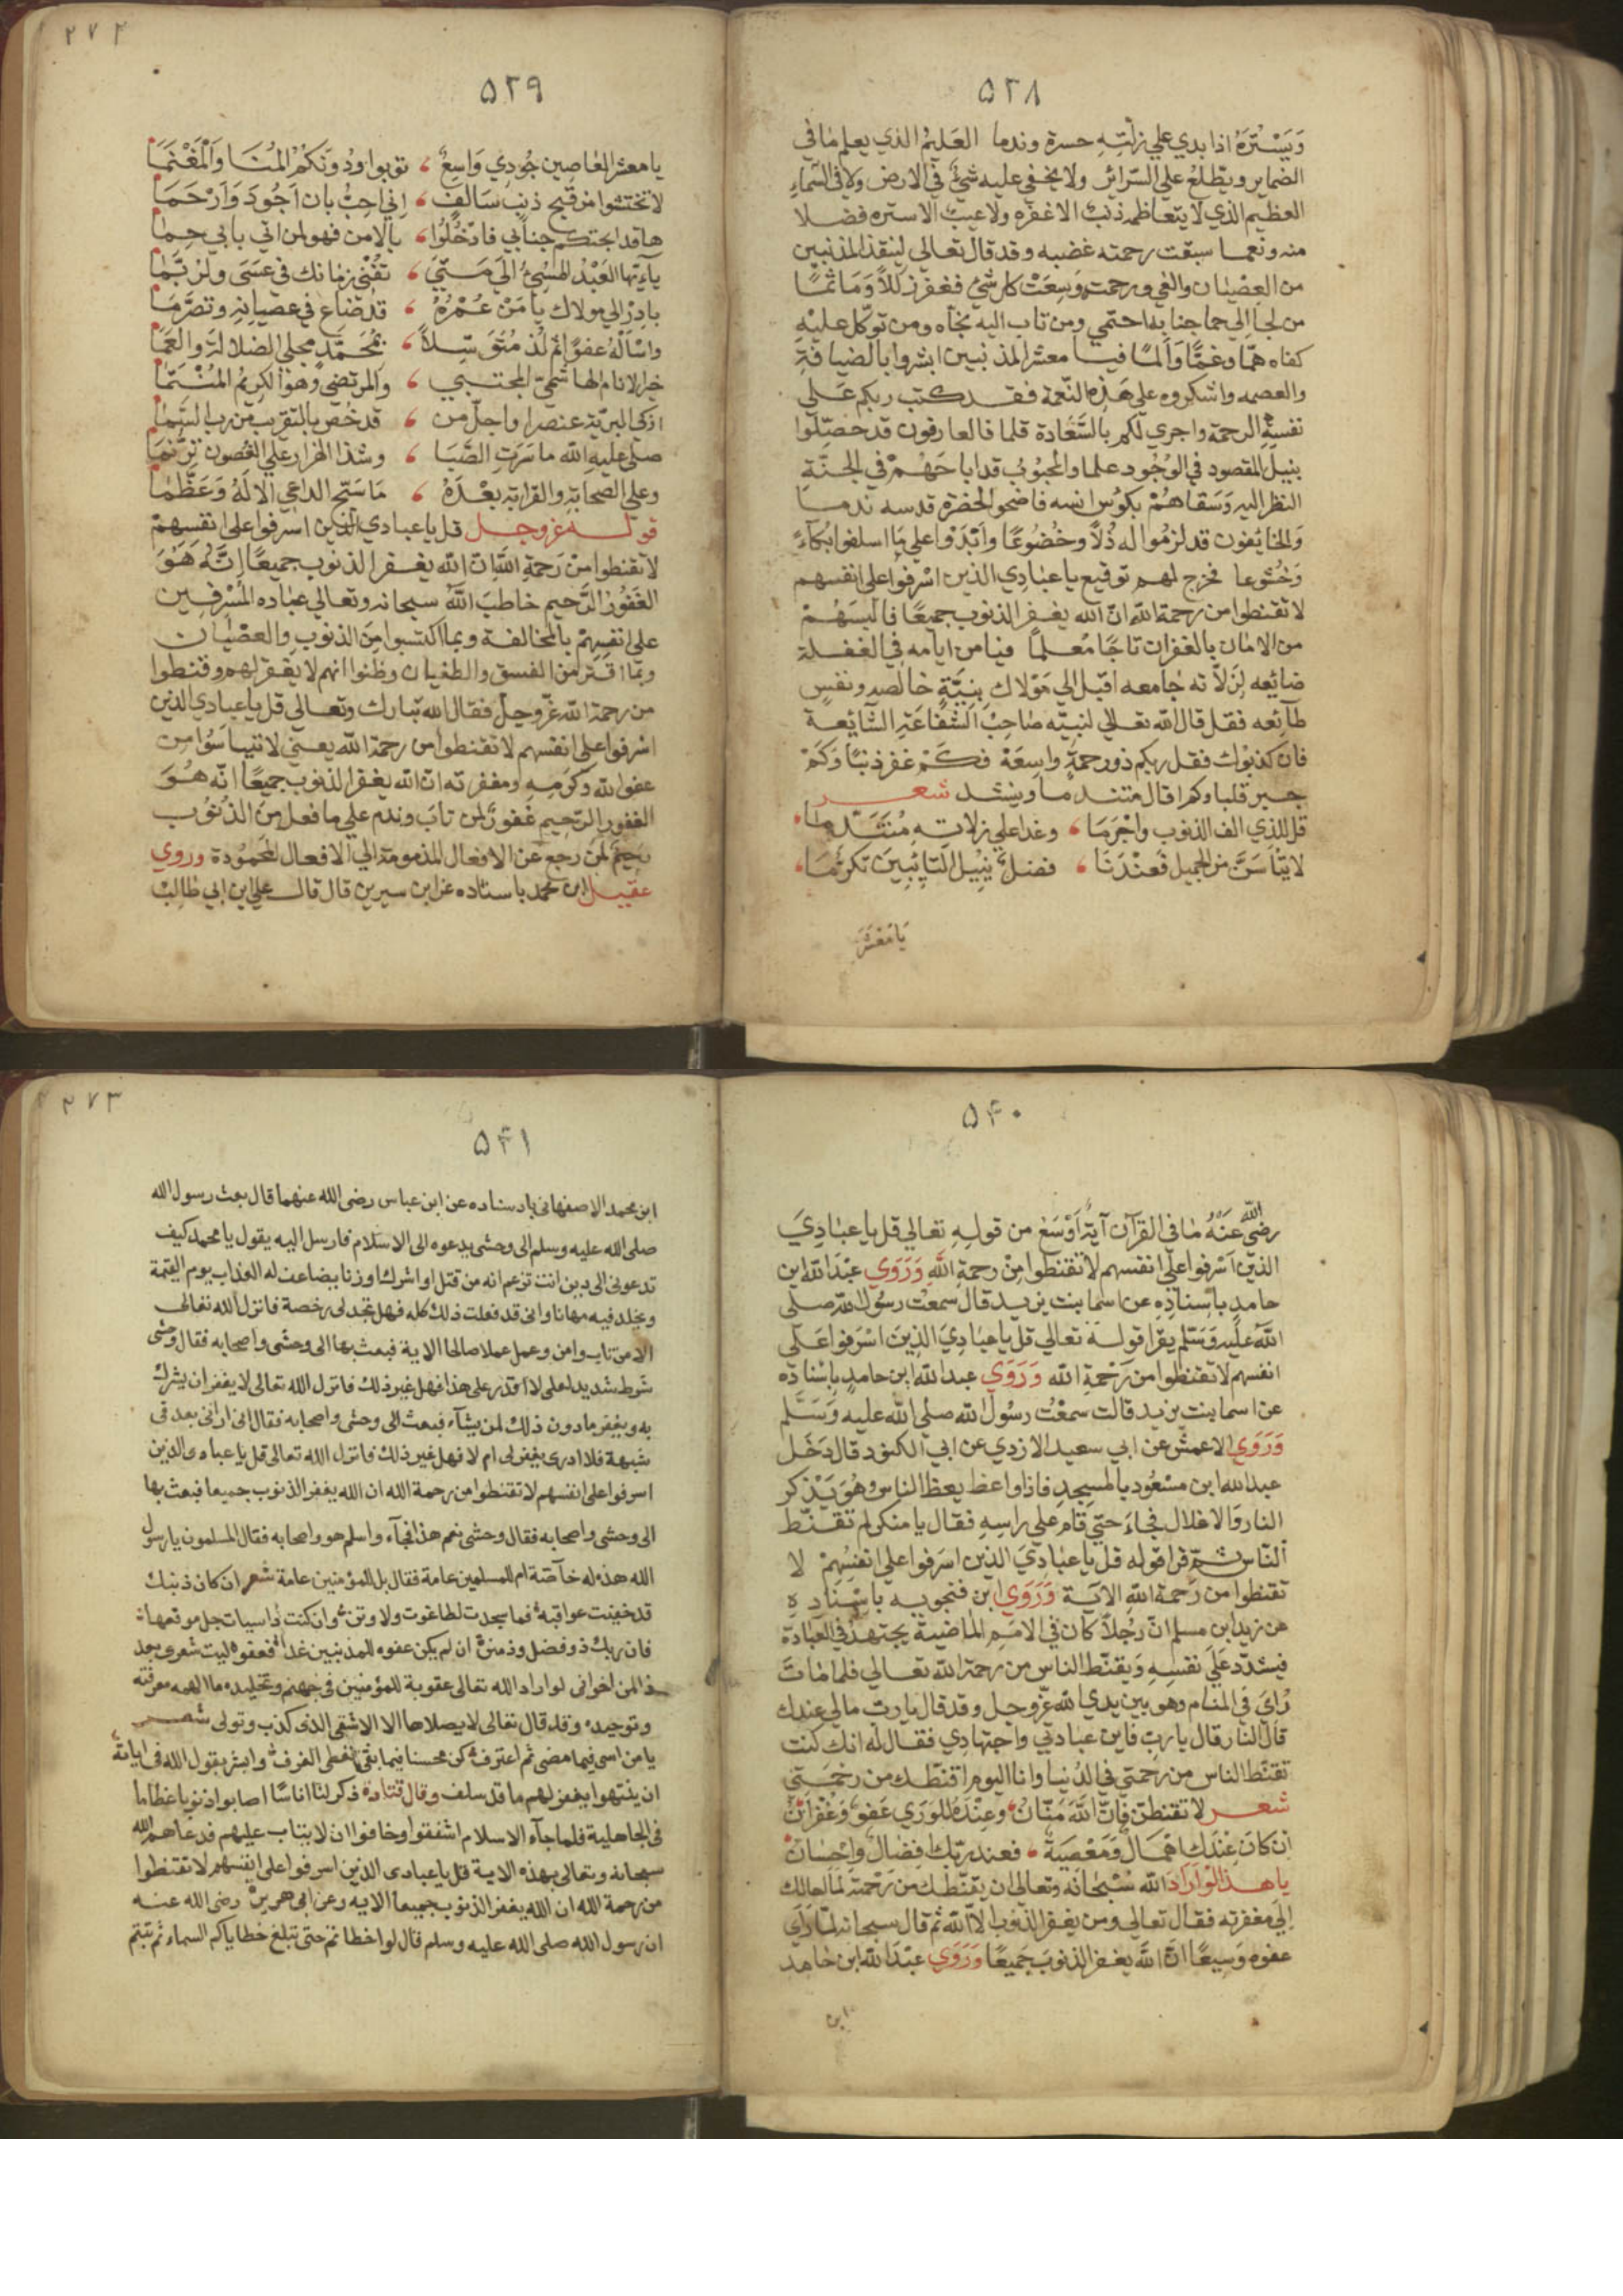 ٥٢٨
وَيَسْتُرَهُ اذا بدي علي زلَّتِهِ حسرة وندما العَليمُ الذي يعلم مَا في
الضماير ويطّلعُ علي السّرائر ولا يخفي عليه شئ في الارض ولا في السّماءِ
العظيم الذي لا يتعاظمه ذنبٌ الا غفره ولا عيبٌ الا ستره فضلا
منه ونعما سبقت رحمته غضبه وقد قال تعالي لينقذ المذنبين
من العصْيان والغي ورحمتي وَسِعَتْ كل شئ فغفر زللاً وَمَاثمًا
من لجا الي حما جنابه احتمي ومن تاب اليه نجّاه ومن توكّل عليْهِ
كفاه همًّا وغمًّا وَالمًا فيا معشر المذنبين ابشروا بالضيافةِ
والعصمه واشكروه علي هَذِه النّعمة فقد كتب ربكم عَلَي
نفسهِ الرحمة واجري لكم بالسَّعَادة قلما فالعارفون قد حصّلوا
بنيل المقصود في الوُجُود علما والمحبُوبُ قد اباحَهُمْ في الجنَّةِ
النظر اليه وَسَقاهُمْ بكوُس انسه فاضحوا لحضرة قدسه ندما
وَالخائفون قد لزمُوا له ذُلاً وخُضُوعًا وابْدَوْا علي مَا اسلفوا بكاءً
وَخُشُوعا فخرج لهم توقيع ياعبَادِي الذين اسْرفوا على انفسهم
لا تقنطوا من رحمة الله انّ الله يغفر الذنوب جميعًا فالبسَهُمْ
من الامان بالغفران تاجًا مُعلمًا فيا من ايامه في الغفلة
ضائعه لِزَلاته جَامعه اقبل الي مَوْلاك بِنِيَّةٍ خالصه ونفسٍ
طآئعه فقل قال الله تعالي لنبيّه صَاحِبْ الشفاعَة الشّائعة
فان كذبوك فقل ربكم ذورحمةٍ واسِعَة فكَمْ غفر ذنبًا وَكَمْ
جبر قلبا وكم اقال متندما وينشد شعر
قل للذي الف الذنوب واجْرَمَا وغدا علي زلاته مُتندّما
لا تيْاَسَنَّ من الجميل فَعنْدَنَا فضلٌ يُنيل التائبينَ تكرّمَا
يَا مَعْشَرَ
٢٧٢
٥٢٩
يا معشر العَاصِين جُودِي وَاسِعٌ توبوا ودُونَكُمْ المُنَا وَالمَغْنَمَا
لا تختشوا من قبيح ذنبٍ سَالفٍ اِني احِبُّ بان اَجُودَ وَاَرْحَمَا
ها قد ابحتكم جنابي فادْخُلُوا بالامن فهو لمن اتي بابي حِمَا
يآ ايّها العَبْدُ المُسِيُ الَي مَتَيَ تفْنِي زمانك في عَسَى ولرُبَّمَا
بادِرْ الي مولاك يا مَنْ عُمْرُهُ قد ضَاع في عصيانهِ وتصَرَّمَا
واسْاَلْهُ عفوًا ثم لُذ مُتَوَسّلاً بمُحَمَّدٍ مجلي الضلالة والعَمَا
خير الانام الهاشميّ المجتبي والمرتضي وهو الكريمُ المُنْتَمَا
ازكي البريّة عنصرا واجلّ من قد خُص بالتقريب من رب السَّمَا
صلى عليهِ الله ما سَرَتِ الصَّبَا وشذا الهزار علي الغُصون تَرَنُّمَا
وعلي الصحابة والقرابة بعْدَهُ مَا سَبّح الداعي الالهُ وَعَظَّمَا
قوله عز وجل قل ياعبادي الذين اسْرفوا على انفسهمْ
لا تقنطوا مِنْ رَحمةِ اللهِ ان الله يغفر الذنوب جميعًا اِنَّهُ هُوَ
الغفُورُ الرَّحيم خاطبَ اللهُ سبحانه وتعالي عبَاده المُسْرفين
على انفسِهِمْ بالمخالفة وبما اكتسبوا مِنَ الذنوبِ والعصْيَان
وبمَا اقتر من الفسق والطغيان وظنوا انهم لا يغفر لهم وقنطوا
من رحمة الله عزّ وجلَّ فقال الله تبارك وتعالى قل ياعبادي الذين
اسْرفوا على انفسهم لا تقنطوا من رحمة الله يعني لا تيْاَسُوا من
عفو الله وكرمه ومغفرته ان الله يغفر الذنوب جميعًا انّه هُوَ
الغفور الرّحيم غَفورٌ لمن تابَ وندم علي ما فعل مِنَ الذنُوب
رحِيمٌ لمن رجع عن الافعال المذمومة الي الافعال المحمُودة وروي
عقيل ابن محمد باسناده عن ابن سيرين قال قال علي ابن ابي طالِبْ
٥٤٠
رضيَ اللهُ عَنْهُ مَا في القرآن آيةٌ اَوْسَعْ من قولِهِ تعالي قل ياعبَادِيَ
الذينَ اسْرفوا علَى انفسهم لا تقنطوا مِنْ رحمةِ اللهِ وَرَوَي عبْدَ الله ابن
حامدٍ باسْنادِهِ عن اسما بنت يزيد قالَ سمعْت رسُولَ الله صلى
اللهُ عليْهِ وَسَلّم يقرا قولهُ تعالي قلْ ياعبَادِيَ الذِينَ اسْرَفوا عَلَى
انفسهم لا تقنطوا من رَحْمةِ الله وَرَوَي عبد الله ابن حامدٍ باسْنادِه
عن اسما بنت يزيد قالت سمعْتُ رسُولُ الله صلى الله عليه وَسَلّم
وَرَوَي الاعمش عن ابي سعيد الازدي عن ابي الكنود قال دَخَل
عبد الله ابن مسْعُود بالمسْجِدِ فاذا واعظ يعظ الناسَ وهُوَ يَذْكر
النار والاغلال فجاءَ حتّي قام علي راسِهِ فقال يا منكر لم تقنّط
النّاسْ ثمّ قرا قوله قل ياعبَادِيَ الذين اسْرَفوا على انفسِهِمْ لا
تقنطوا من رَّحمة اللهِ الاية وَرَوَي ابن فنجويه باسْنادِهِ
عن زيد ابن مسلم انّ رَجُلاً كان في الامَمِ الماضية يجتهدُ في العبَادة
فيشدّد علَي نفسِهِ وَيقنّط الناس من رحمة الله تعالي فلما مَاتَ
رُايَ في المنام وهو بين يدي الله عزّ وجل وقد قال يارب مالي عندك
قالَ النار قال ياربِّ فاين عبادتي واجتهادِي فقال له انك كنت
تقنّط الناس من رَحمتي في الدُّنيا وانا اليوم اقنّطك من رحمَتِي
شعر لا تقنطنّ فانّ اللهَ مَنّانٌ وعِنْدَهُ للوَرَي عَفوٌ وَغُفْرَانٌ
اِن كانَ عِنْدَك اهْمَالٌ وَمَعْصيَةٌ فعند ربّك افضالٌ واحْسانٌ
يا هذا لوْ اَرَادَ اللهُ سُبْحَانَهُ وتعالى ان يقنّطك من رَحْمتهِ لمَا احالك
الي مغفرته فقال تعالي ومن يغفر الذنوب الاّ الله ثم قال سبحانه لما رَاَي
عفوه وَسِيعًا انّ اللهَ يغفر الذنوبَ جَميعًا وَرَوَي عبْدَ الله ابن حامد
ابن
٢٧٣
٥٤١
ابن محمد الاصفهانى باسناده عن ابن عباس رضى الله عنهما قال بعث رسول الله
صلى الله عليه وسلم الى وحشى يدعوه الى الاسلام فارسل اليه يقول يا محمد كيف
تدعونى الى دين انت تزعم انه من قتل او اشرك او زنا يضاعف له العذاب يوم القيمة
ويخلد فيه مهانا وانى قد فعلت ذلك كله فهل تجد لى رخصة فانزل الله تعالى
الا من تاب وامن وعمل عملا صالحا الاية فبعث بها الى وحشى واصحابه فقال وحشى
شرط شديد لعلى لا اقدر على هذا فهل غير ذلك فانزل الله تعالى لا يغفر ان يشرك
به ويغفر ما دون ذلك لمن يشآء فبعث الى وحشى واصحابه فقال انى ارانى بعد فى
شبهة فلا ادرى يغفر لى ام لا فهل غير ذلك فانزل الله تعالى قل ياعبادى الذين
اسرفوا على انفسهم لا تقنطوا من رحمة الله ان الله يغفر الذنوب جميعا فبعث بها
الى وحشى واصحابه فقال وحشى نعم هذا فجآء واسلم هو واصحابه فقال المسلمون يا رسول
الله هذه له خاصّة ام للمسلمين عامة فقال بل للمؤمنين عامة شعر ان كان ذنبك
قد خيفت عواقبه فما سجدت لطاغوت ولا وثن وان كنت ذا سيات جل موقعها
فان ربك ذو فضل وذ منن ان لم يكن عفوه للمذنبين غدا فعفوه ليت شعرى بعد
ذا لمن اخوانى لو اراد الله تعالى عقوبة للمؤمنين فى جهنم وتخليده ما الهمه معرفته
وتوحيده وقد قال تعالى لا يصلاها الا الاشقى الذى كذب وتولى شعر
يا من اسى فيما مضى ثم اعترف كن محسنا فيما بقى تعطى الغرف وابشر بقول الله فى اياته
ان ينتهوا يغفر لهم ما قد سلف وقال قتادة ذكر لنا اناسًا اصابوا ذنوبا عظاما
فى الجاهلية فلما جآء الاسلام اشفقوا وخافوا ان لا يتاب عليهم فدعاهم الله
سبحانه وتعالى بهذه الاية قل ياعبادى الذين اسرفوا على انفسهم لا تقنطوا
من رحمة الله ان الله يغفر الذنوب جميعا الايه وعن ابى هريرة رضى الله عنه
ان رسول الله صلى الله عليه وسلم قال لو اخطاتم حتى تبلغ خطاياكم السماء ثم تبتم